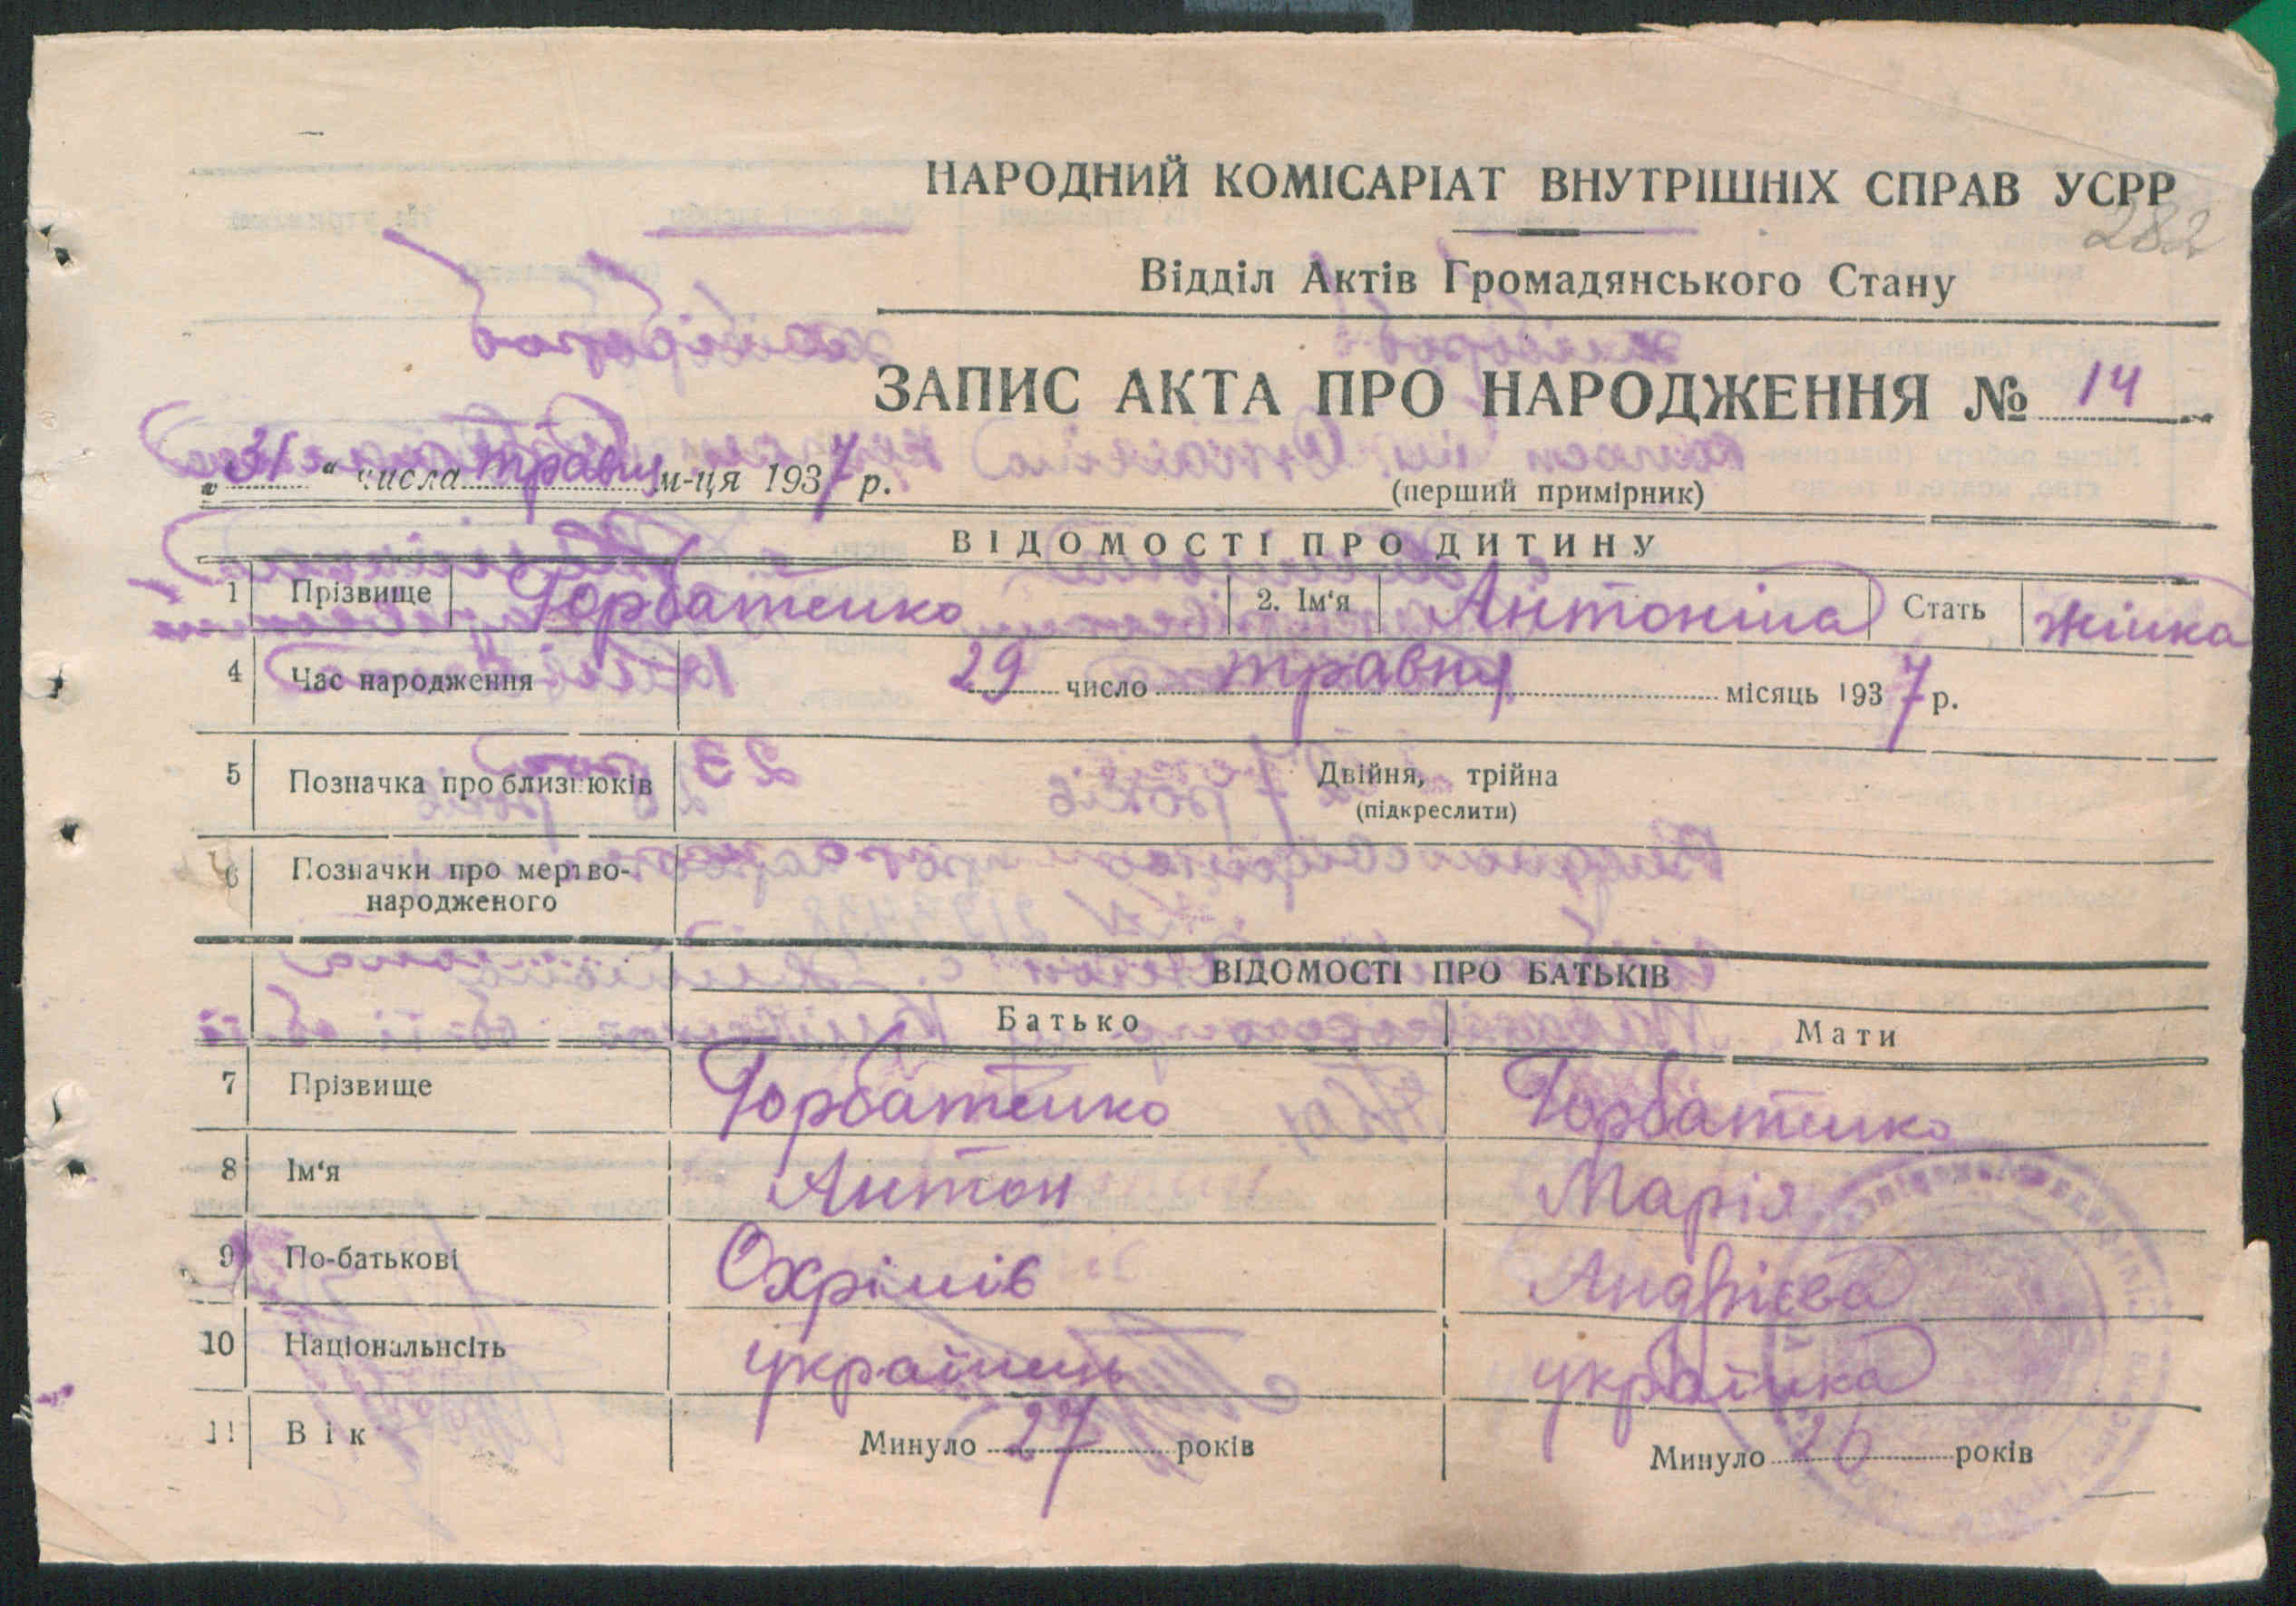 НАРОДНИЙ КОМІСАРІАТ ВНУТРІШНІХ СПРАВ УСРР
282
Відділ Актів Громадянського Стану
ЗАПИС АКТА ПРО НАРОДЖЕННЯ № 14
„31“ числа травня м-ця 1937 р.
(перший примірник)
ВІДОМОСТІ ПРО ДИТИНУ
1 Прізвище Горбатенко 2. Ім'я Антоніна Стать жінка
4 Час народження 29 число травня місяць 1937 р.
5 Позначка про близнюків Двійня, трійна
(підкреслити)
6 Позначки про мертво-
народженого
ВІДОМОСТІ ПРО БАТЬКІВ
Батько Мати
7 Прізвище Горбатенко Горбатенко
8 Ім'я Антон Марія
9 По-батькові Охрімів Андрієва
10 Національнсіть українець українка
11 Вік Минуло 27 років Минуло 26 років